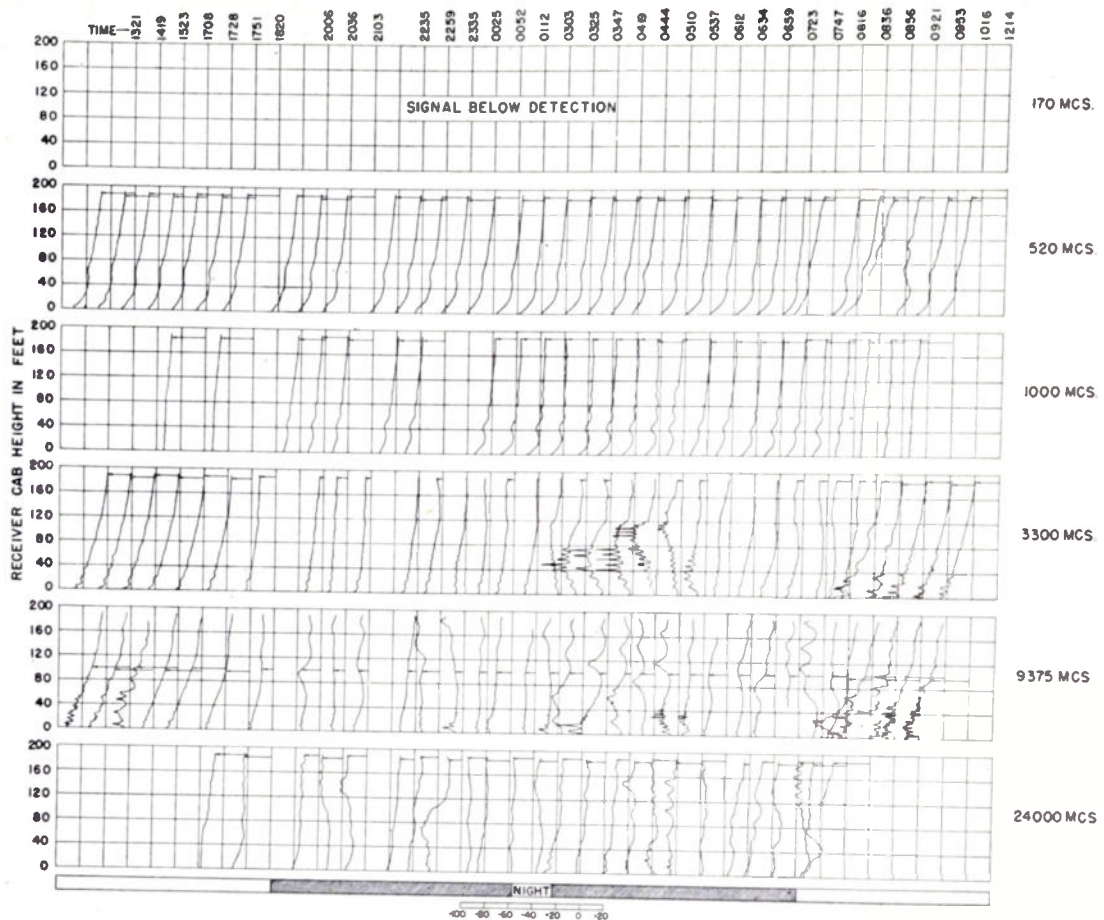 TIME— 1321 1419 1523 1708 1728 1751 1820 2006 2036 2103 2235 2259 2335 0025 0052 0112 0303 0325 0347 0419 0444 0510 0537 0612 0634 0659 0723 0747 0816 0836 0856 0921 0953 1016 1214
200
160
120
80
40
0
SIGNAL BELOW DETECTION
170 MCS.
200
160
120
80
40
0
520 MCS.
RECEIVER CAB HEIGHT IN FEET
200
160
120
80
40
0
1000 MCS.
200
160
120
80
40
0
3300 MCS.
200
160
120
80
40
0
9375 MCS
200
160
120
80
40
0
24000 MCS
NIGHT
-100 -80 -60 -40 -20 0 -20